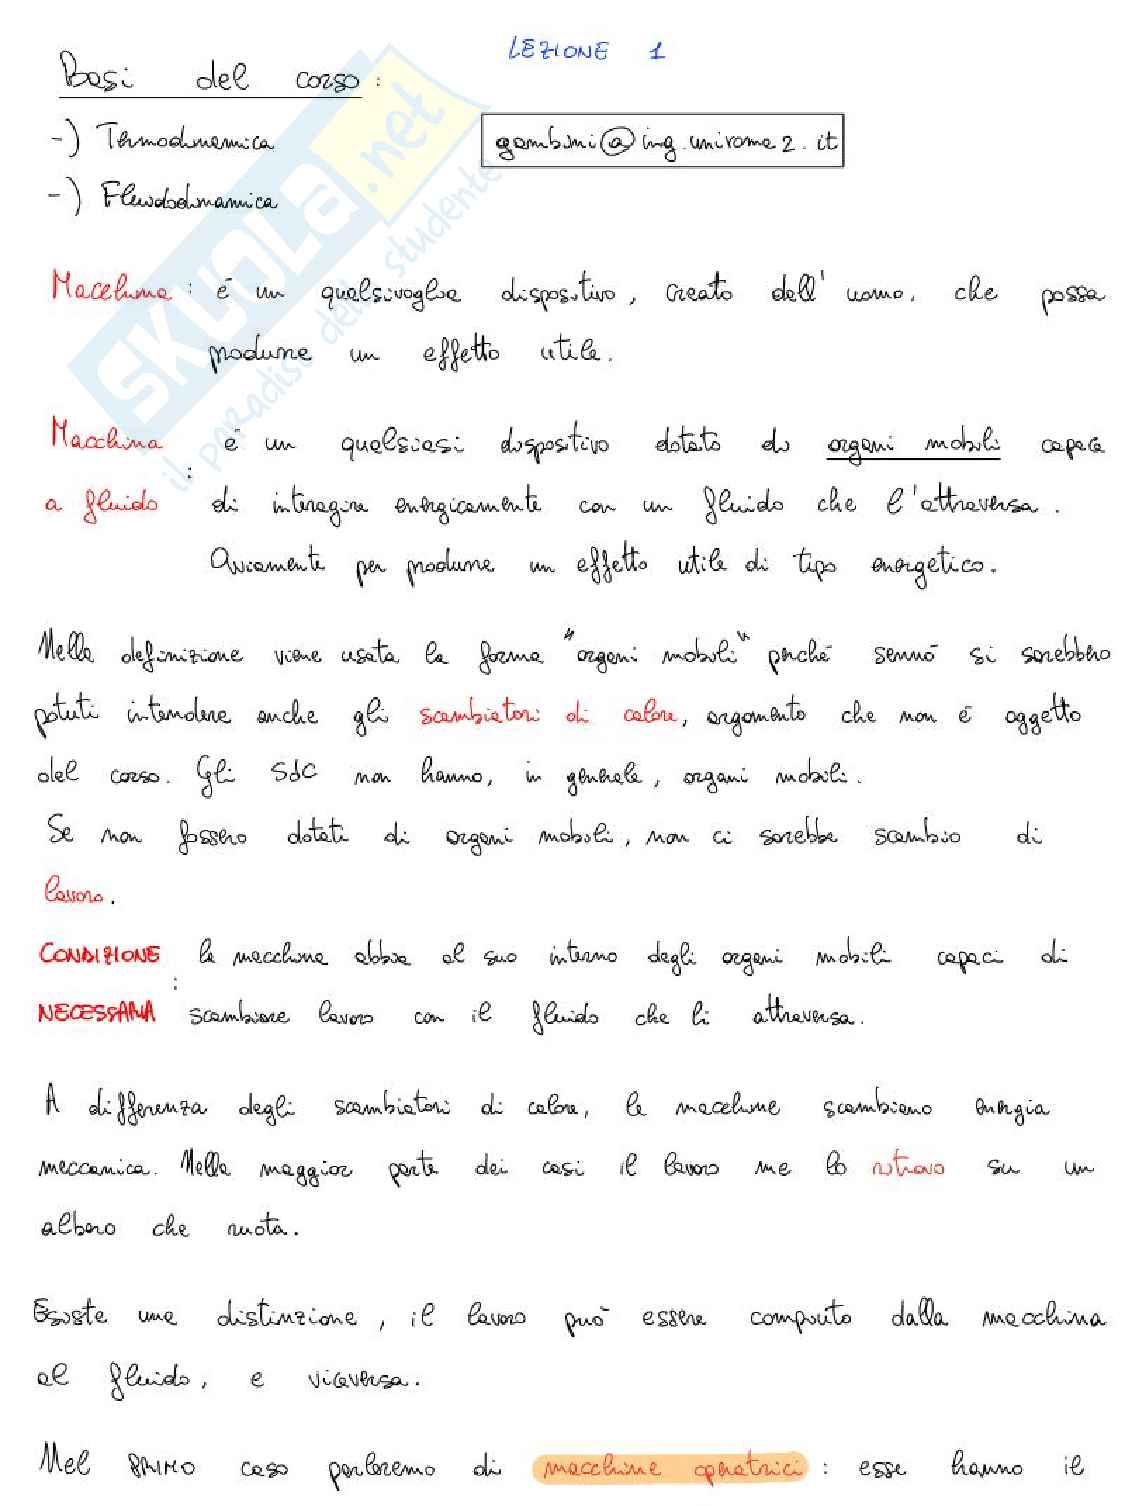 LEZIONE 1
Basi del corso :
-) Termodinamica
gambini@ing.uniroma2.it
-) Fluidodinamica
SKUOLA.net
il paradiso dello studente
Macchina : é un qualsivoglia dispositivo, creato dall' uomo, che possa
produrre un effetto utile.
Macchina a fluido : é un qualsiasi dispositivo dotato di organi mobili capace
di interagire energicamente con un fluido che l'attraversa.
Ovviamente per produrre un effetto utile di tipo energetico.
Nella definizione viene usata la forma "organi mobili" perché sennó si sarebbero
potuti intendere anche gli scambiatori di calore, argomento che non é oggetto
del corso. Gli SdC non hanno, in generale, organi mobili.
Se non fossero dotati di organi mobili, non ci sarebbe scambio di
lavoro.
CONDIZIONE NECESSARIA : la macchina abbia al suo interno degli organi mobili capaci di
scambiare lavoro con il fluido che li attraversa.
A differenza degli scambiatori di calore, le macchine scambiano energia
meccanica. Nella maggior parte dei casi il lavoro me lo ritrovo su un
albero che ruota.
Esiste una distinzione, il lavoro puó essere compiuto dalla macchina
al fluido, e viceversa.
Nel PRIMO caso parleremo di macchine operatrici : esse hanno il